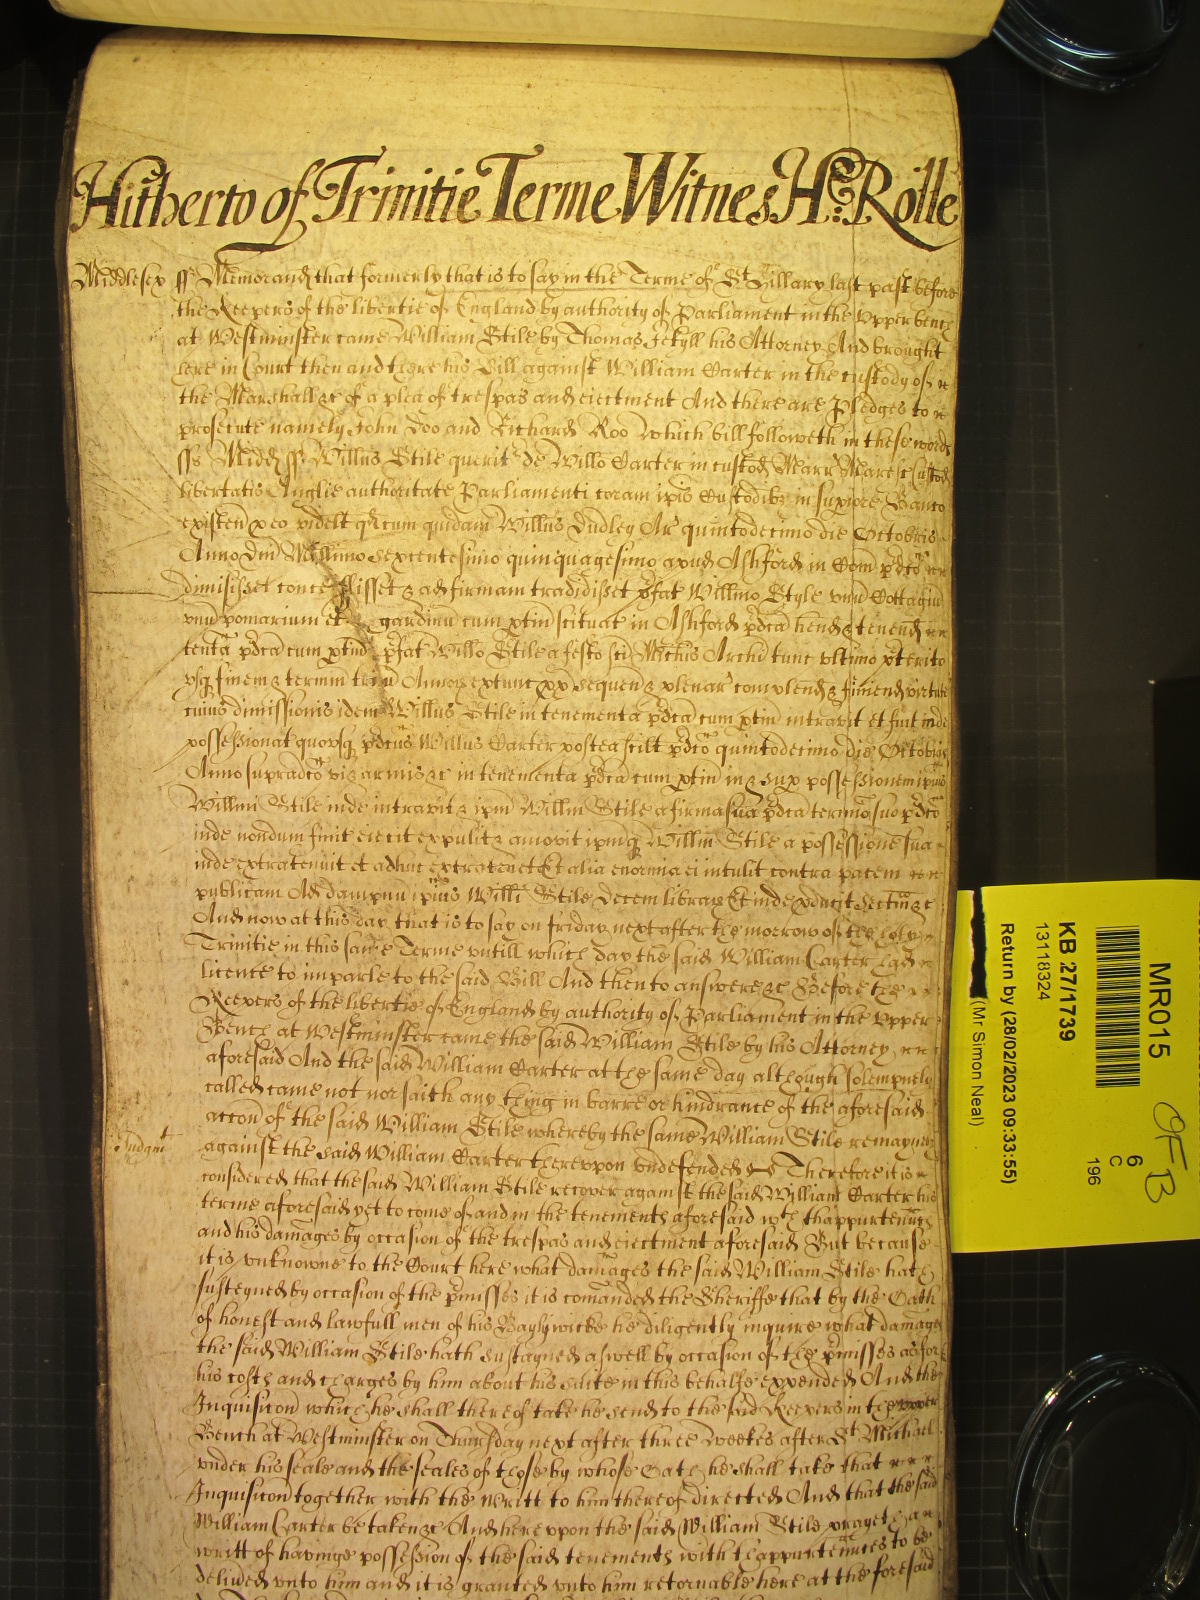 Hitherto of Trinitie Terme Witnes H: Rolle
Middlesex ss Memorand that formerly that is to say in the Terme of St Hillary last past before
the Keepers of the libertie of England by authority of Parliament in the Upper bench
at Westminster came William Stile by Thomas Jekyll his Attorney And brought
here in Court then and there his Bill against William Carter in the custody of
the Marshall &c of a plea of trespas and eiectment And there are Pledges to
prosecute namely John Doo and Richard Roo Which bill followeth in these words
ss Midd ss Willus Stile querit de Willo Carter in custod Marr Maresc Custod
libertatis Anglie authoritate Parliamenti coram ipis Custodibz in supiore Banco
existen p eo videlt qd cum quidam Willus Dudley Ar quintodecimo die Octobris
Anno Dni Millimo sexcentesimo quinquagesimo apud Ashford in Com pdco
dimisisset concessisset & ad firmam tradidisset pfat Willimo Style unu Cottagiu
unu pomarium et gardinu cum ptin scituat in Ashford pdca hend & tenend
tenta pdca cum ptin pfat Willo Stile a festo sci Michis Archi tunc ultimo pterito
usq finem & termin triu Annoz extunc px sequen & plenar complend & finiend virtute
cuius dimissionis idem Willus Stile in tenementa pdca cum ptin intravit et fuit inde
possessionat quousq pdcus Willus Carter postea scilt pdco quintodecimo die Octobris
Anno supradco vi & armis &c in tenementa pdca cum ptin in & sup possessionem ipius
Willmi Stile inde intravit & ipm Willm Stile a firma sua pdca termino suo pdco
inde nondum finit eiecit expulit & amovit ipmq Willm Stile a possessione sua
inde extratenuit et adhuc extratenet Et alia enormia ei intulit contra pacem
publicam Ad dampnu ipius Willi Stile decem libraz Et inde pducit sectam &c
And now at this day that is to say on friday next after the morrow of the holy
Trinitie in this same Terme untill which day the said William Carter had
licence to imparle to the said Bill And then to answere &c Before the
Keepers of the libertie of England by authority of Parliament in the Upper
Bench at Westminster came the said William Stile by his Attorney
aforesaid And the said William Carter at the same day although solempnely
called came not nor saith any thing in barre or hindrance of the aforesaid
accon of the said William Stile whereby the same William Stile remayneth
Judgmt against the said William Carter thereupon undefended Therefore it is
considered that the said William Stile recover against the said William Carter his
terme aforesaid yet to come of and in the tenements aforesaid wth thappurtennces
and his damages by occasion of the trespas and eiectment aforesaid But because
it is unknowne to the Court here what damages the said William Stile hath
susteyned by occasion of the pmisses it is comanded the Sheriffe that by the Oath
of honest and lawfull men of his Baylywicke he diligently inquire what damages
the said William Stile hath sustayned aswell by occasion of the pmisses as for
his costs and charges by him about his suite in this behalfe expended And the
Inquisicon which he shall thereof take he send to the said Keepers in the upper
Bench at Westminster on Thursday next after three weekes after St Michael
under his seale and the seales of those by whose Oath he shall take that
Inquisicon together with the Writt to him thereof directed And that the said
William Carter be taken &c And hereupon the said William Stile prayeth a
writt of havinge possession of the said tenements with thappurtennces to be
delived unto him and it is granted unto him retornable here at the foresaid
MR015
KB 27/1739
13118324
Return by (28/02/2023 09:33:55)
(Mr Simon Neal)
6
C
196
OFB